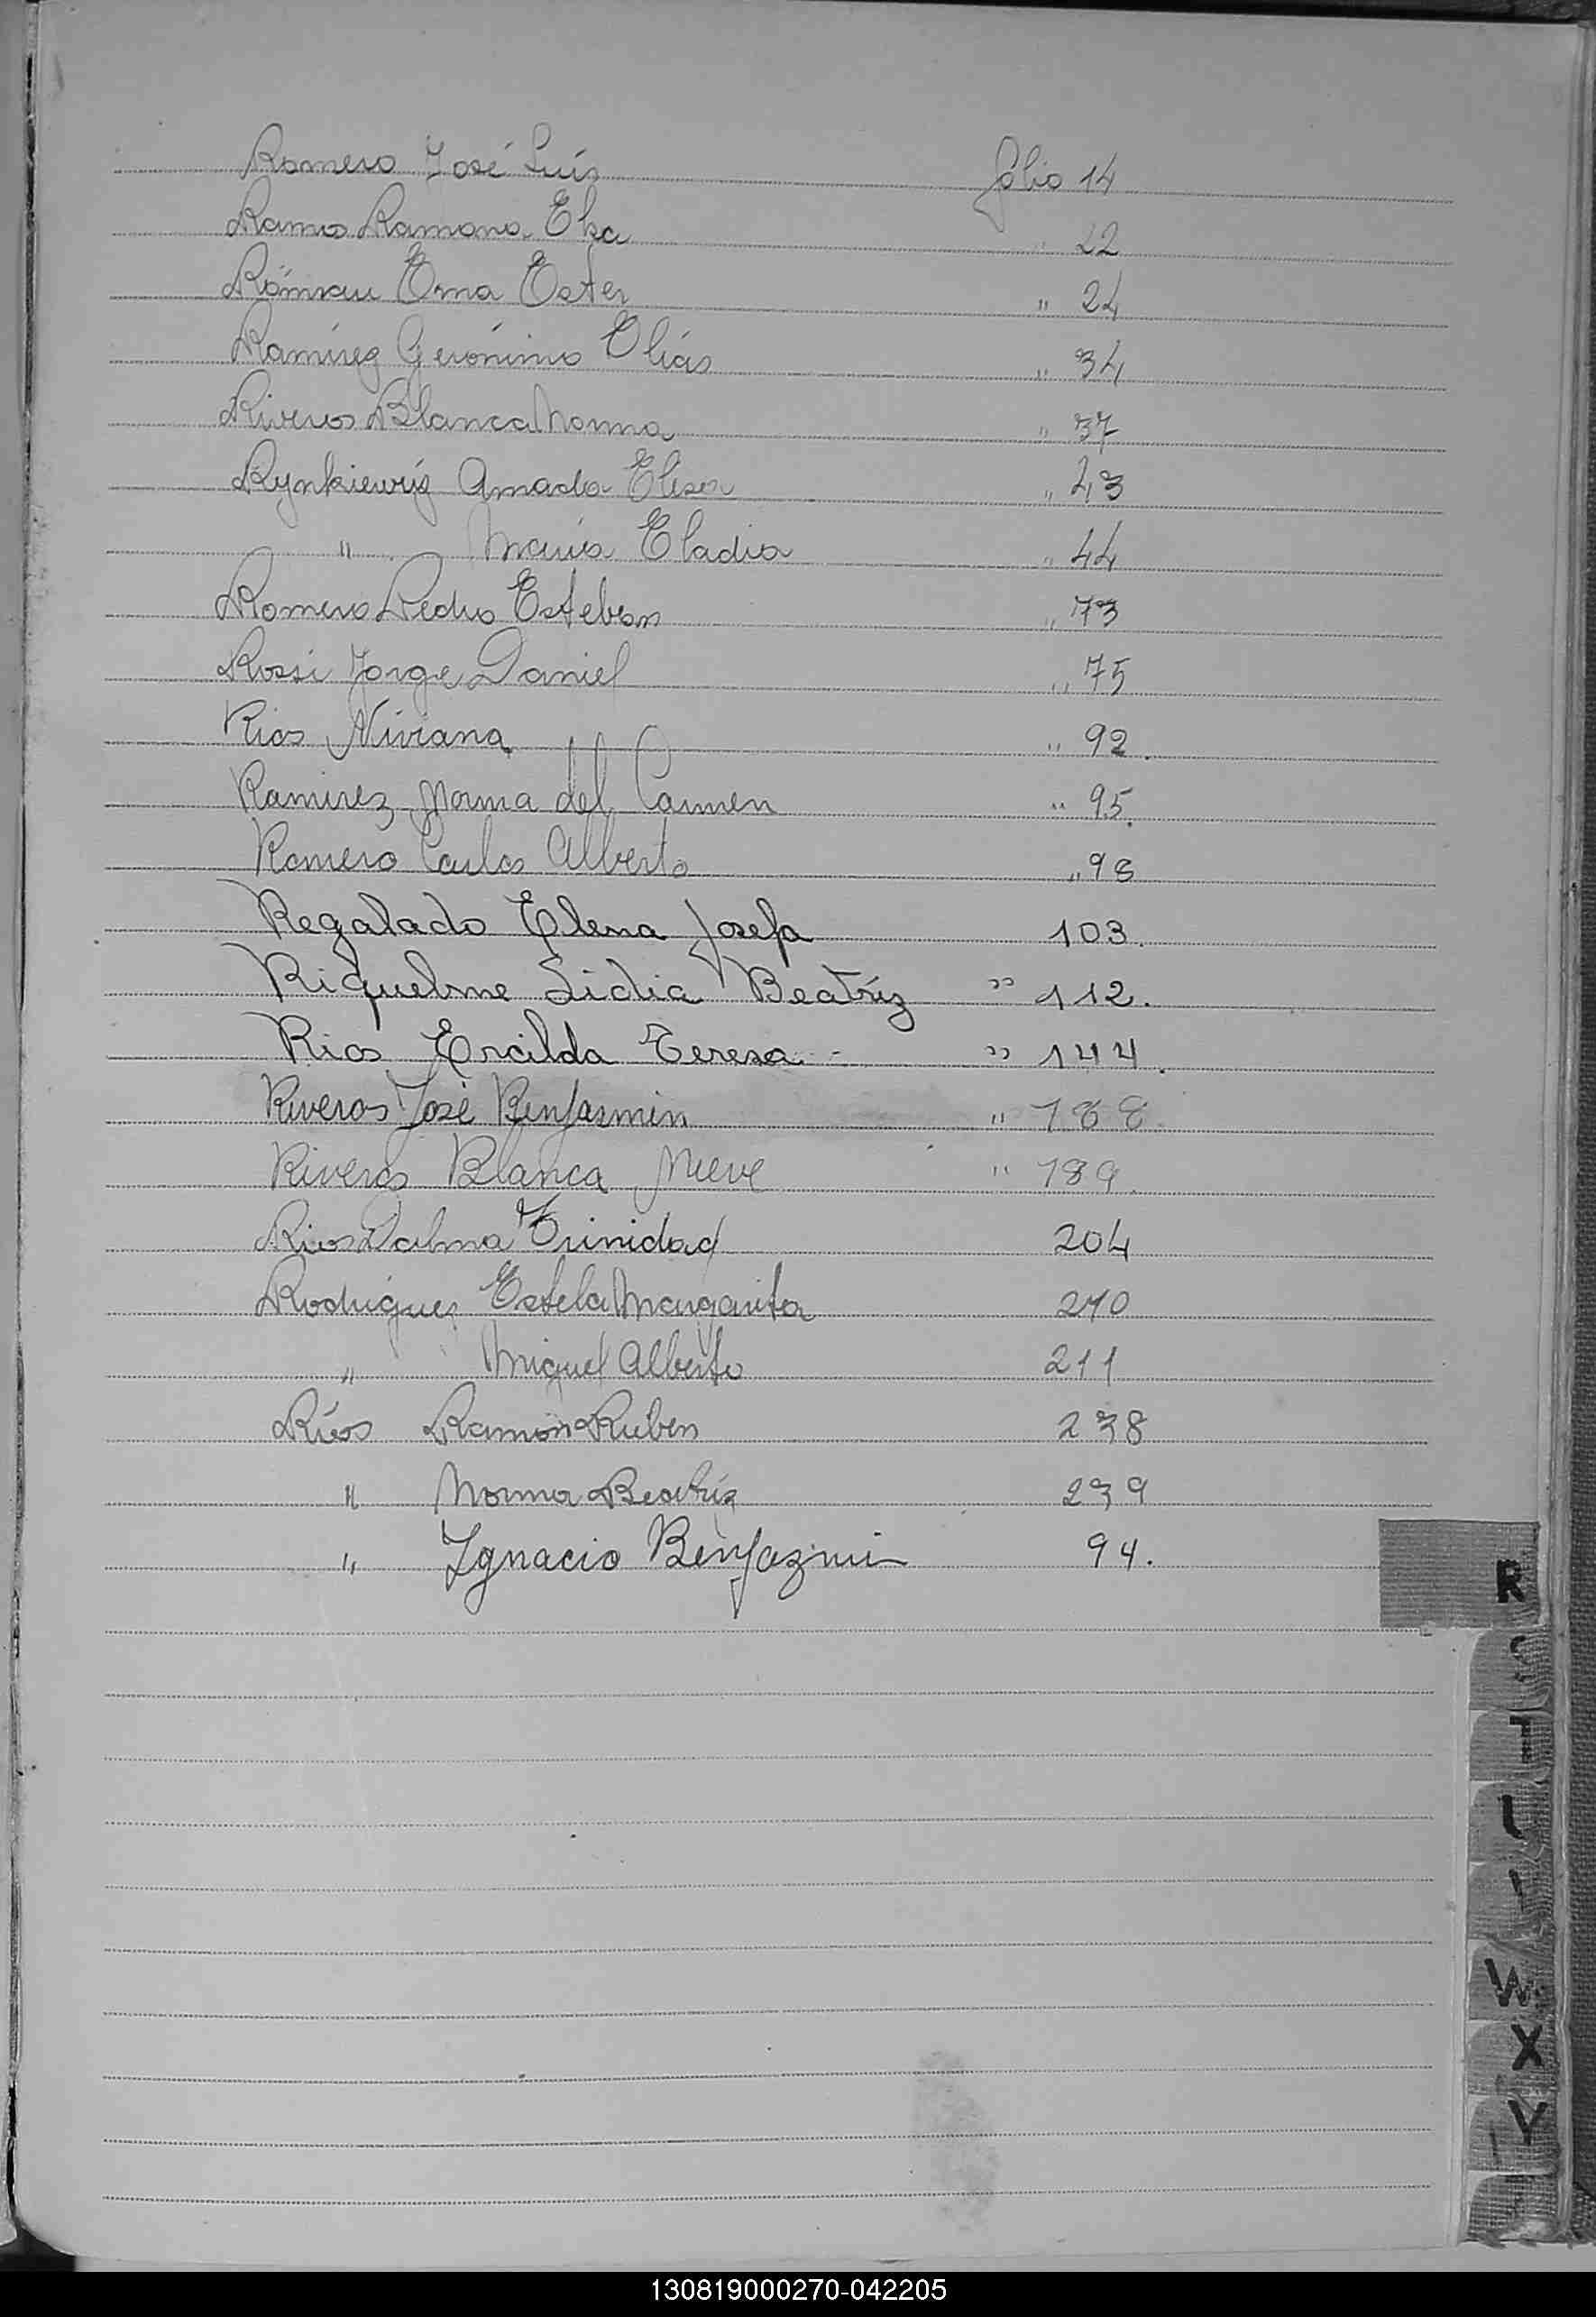 Romero José Luís folio 14
Ramos Ramona Elsa " 22
Ester " 24
Ramírez Gerónimo Elías " 34
Riveros Blanca Norma " 37
Rynkiewiz Amada Elisa " 43
" María Eladia " 44
Romero Pedro Esteban " 73
Rossi Jorge Daniel " 75
Rios Viviana " 92.
Ramirez Norma del Carmen " 95.
Romero Carlos Alberto " 98
Regalado Elena Josefa 103.
Riquelme Lidia Beatríz " 112.
Rios Ercilda Teresa - " 144.
Riveros José Benjasmin " 188.
Riveros Blanca Nieve " 189.
Rios Dalma Trinidad 204
Rodrígues Estela Margarita 210
" Miguel Alberto 211
Ríos Ramón Ruben 238
" Norma Beatríz 239
" Ignacio Benjazmin 94.
R
S
T
W
X
Y
130819000270-042205